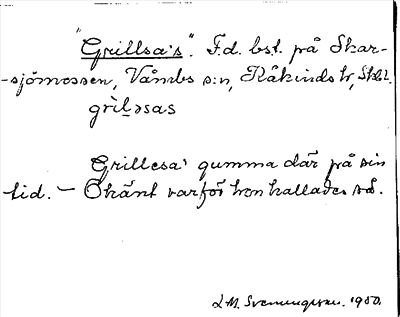 "Grillsa's". F.d. bst. på Skar-
-sjömossen, Våmbs s:n, Kåkinds hr, Skbl.
grìl̠əsas
Grillesa' gumma där på sin
tid. — Okänt varför hon kallades så.
L.M. Svenungsson. 1950.